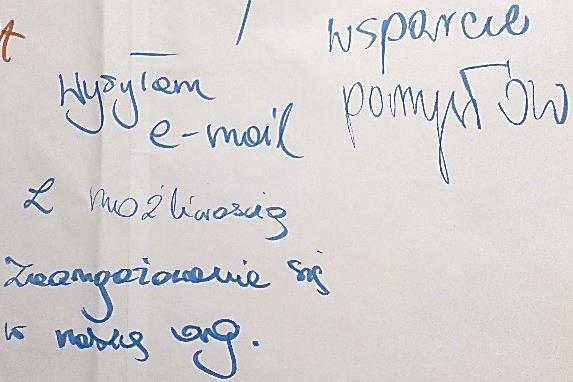 wsparcie
pomysłów
Wysyłam
e-mail
z możliwością
Zaangażowanie się
w naszą org.